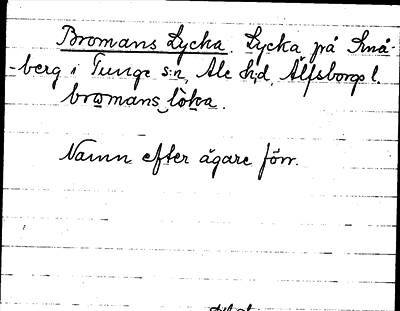 Bromans Lycka. Lycka på Små-
-berg i Tunge s:n, Ale h:d, Älfsborgs l.
bromans lòka.
Namn efter ägare förr.